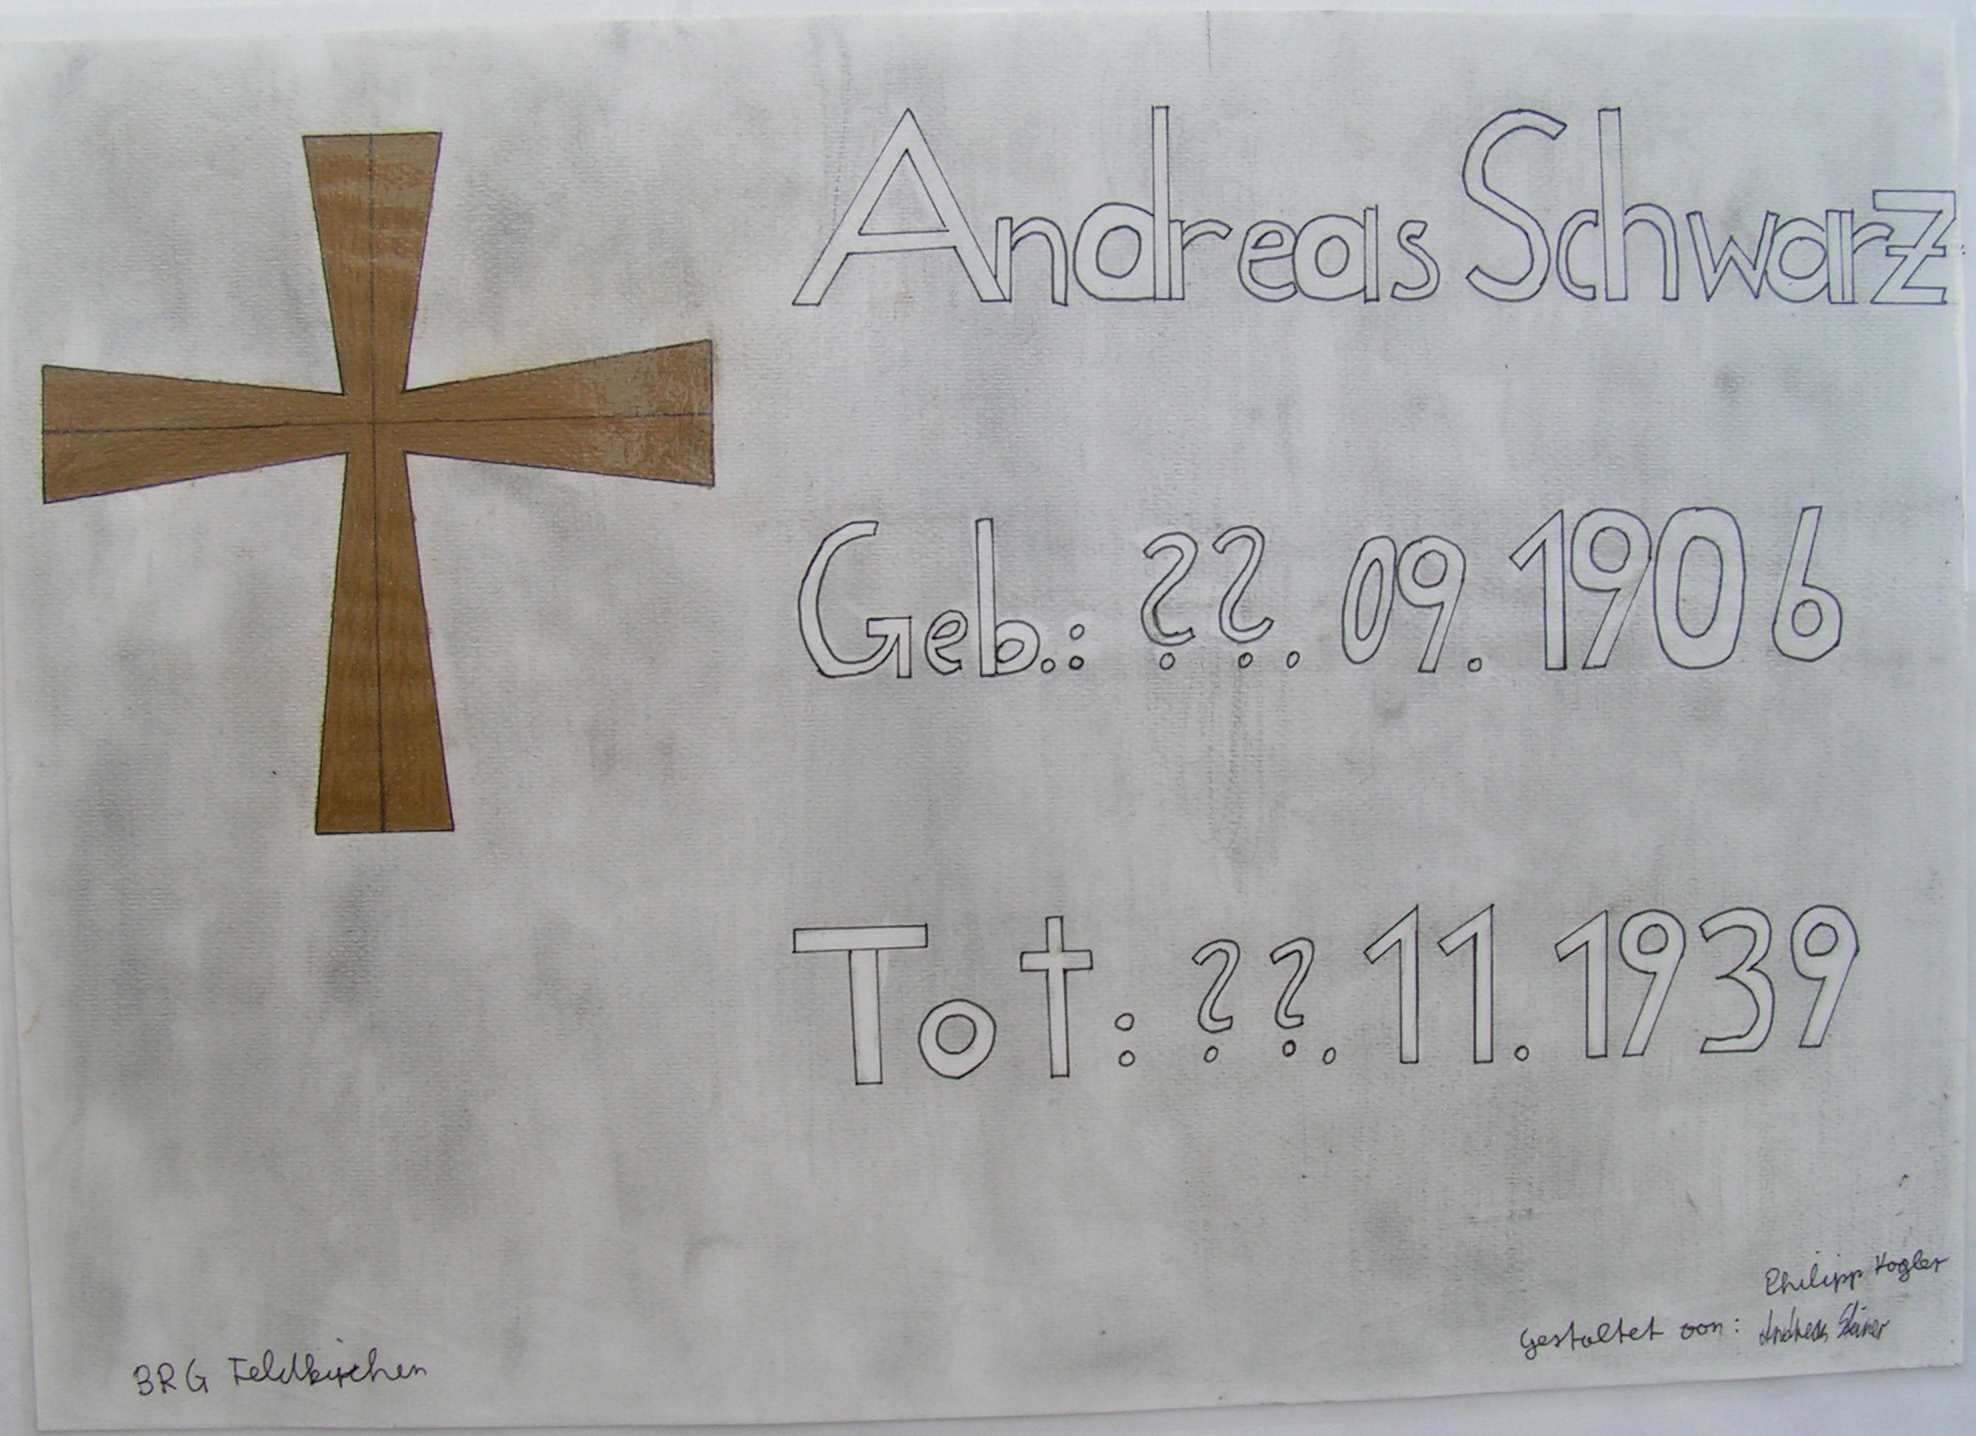 Andreas Schwarz
Geb.: ??.09.1906
Tot: ??.11.1939
BRG Feldkirchen
Philipp Kogler
Gestaltet von: Andreas Steiner